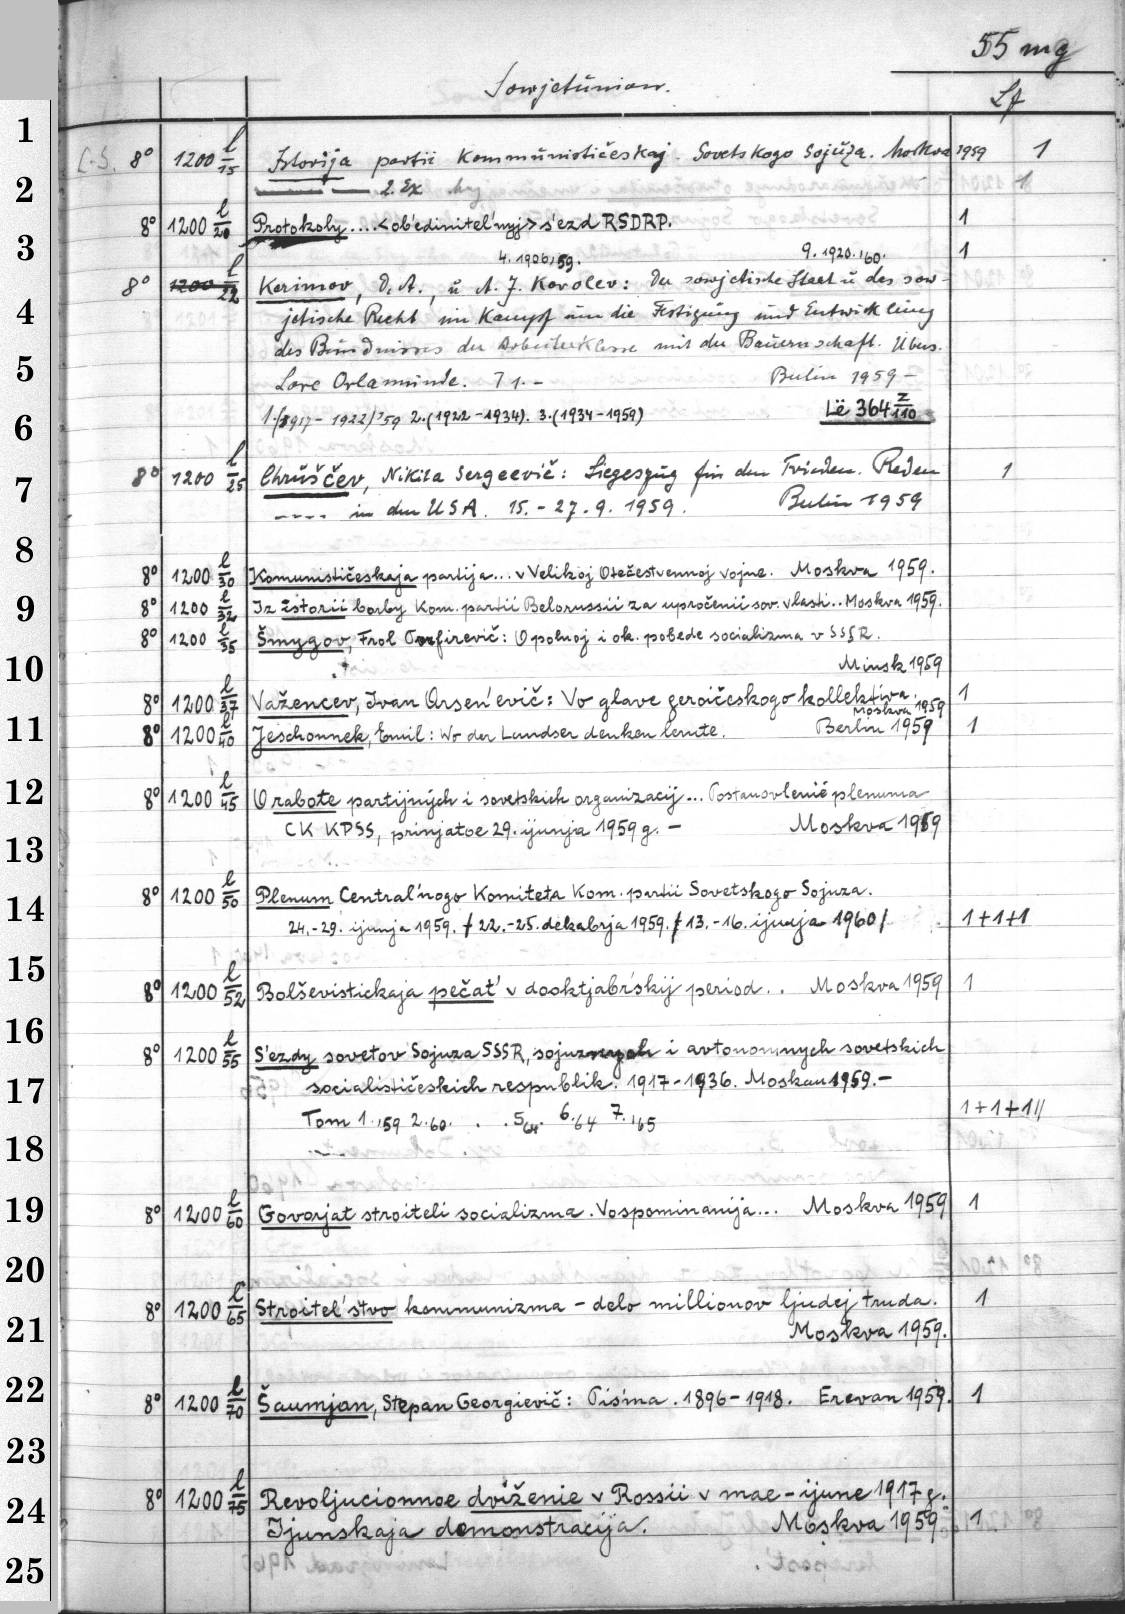 55 mg
Sowjetunion.
Lf
1
L.S. 8° 1200 l/15 Istorija partii Kommunističeskoj. Sovetskogo Sojuza. Moskva 1959 1
2
2. Ex 1
8° 1200 l/20 Protokoly....<ob'edinitel'nyj> s'ezd RSDRP. 1
3
4. 1906,59. 9. 1920.'60. 1
8° 1200 l/22 Kerimov, D. A., u A. J. Korolev: Der sowjetische Staat u des sow-
4
jetische Recht im Kampf um die Festigung und Entwicklung
des Bündnisses der Arbeiterklasse mit der Bauernschaft. Übers.
5
Lore Orlamünde. T 1. - Berlin 1959 -
6
1./1917-1922/'59 2.(1922-1934). 3.(1934-1959) Lë 364 z/110
8° 1200 l/25 Chruščev, Nikita Sergeevič: Siegeszug für den Frieden. Reden 1
7
---- in den USA. 15.-27.9.1959. Berlin 1959
8
8° 1200 l/30 Komunističeskaja partija... v Velikoj Otečestvennoj vojne. Moskva 1959.
9
8° 1200 l/32 Iz istorii borby Kom. partii Belorussii za upročenii sov. vlasti.. Moskva 1959.
8° 1200 l/35 Šmygov, Frol Porfirevič: O polnoj i ok. pobede socializma v SSSR.
10
Minsk 1959
8° 1200 l/37 Važencev, Ivan Arsen'evič: Vo glave geroičeskogo kollektiva. 1
Moskva 1959
11
8° 1200 l/40 Jeschonnek, Emil: Wo der Landser denken lernte. Berlin 1959 1
12
8° 1200 l/45 O rabote partijnych i sovetskich organizacij... Postanovlenie plenuma
CK KPSS, prinjatoe 29. ijunja 1959 g. - Moskva 1959
13
8° 1200 l/50 Plenum Central'nogo Komiteta Kom. partii Sovetskogo Sojuza.
14
24.-29. ijunja 1959. / 22.-25. dekabrja 1959. / 13.-16. ijunja 1960/ 1+1+1
15
8° 1200 l/52 Bolševistickaja pečat' v dooktjabr'skij period.. Moskva 1959 1
16
8° 1200 l/55 S'ezdy sovetov Sojuza SSSR, sojuznych i avtonomnych sovetskich
17
socialističeskich respublik. 1917-1936. Moskau 1959.-
1+1+1//
Tom 1.,59 2.60. . . 5,64. 6.64 7.'65
18
19
8° 1200 l/60 Govorjat stroiteli socializma. Vospominanija... Moskva 1959 1
20
8° 1200 l/65 Stroitel'stvo kommunizma - delo millionov ljudej truda. 1
21
Moskva 1959.
22
8° 1200 l/70 Šaumjan, Stepan Georgievič: Pis'ma. 1896-1918. Erevan 1959. 1
23
8° 1200 l/75 Revoljucionnoe dviženie v Rossii v mae-ijune 1917 g.
24
Ijunskaja demonstracija. Moskva 1959 1
25